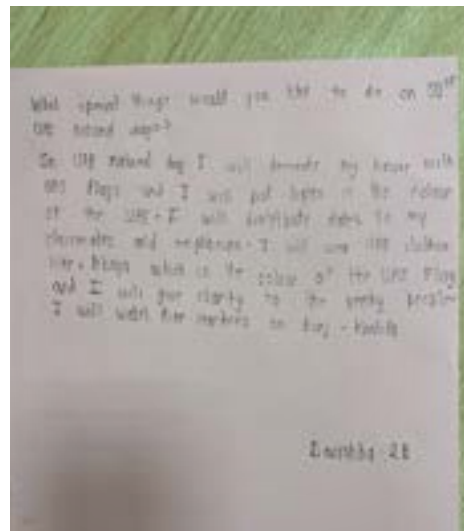 What special things would you like to do on 50th
UAE national day?
In UAE national day I will decorate my house with
UAE flags and I will put lights in the colour
of the UAE. I will distribute to my
classmates and neighbours. I will wear UAE clothes
which is the colour of the UAE flag
and I will give charity to the needy people
I will watch fire on burj - khalifa
2B